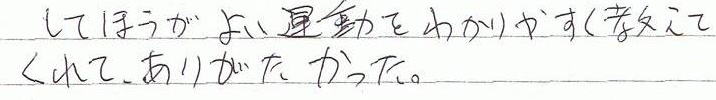 してほうがよい運動をわかりやすく教えて
くれて、ありがたかった。